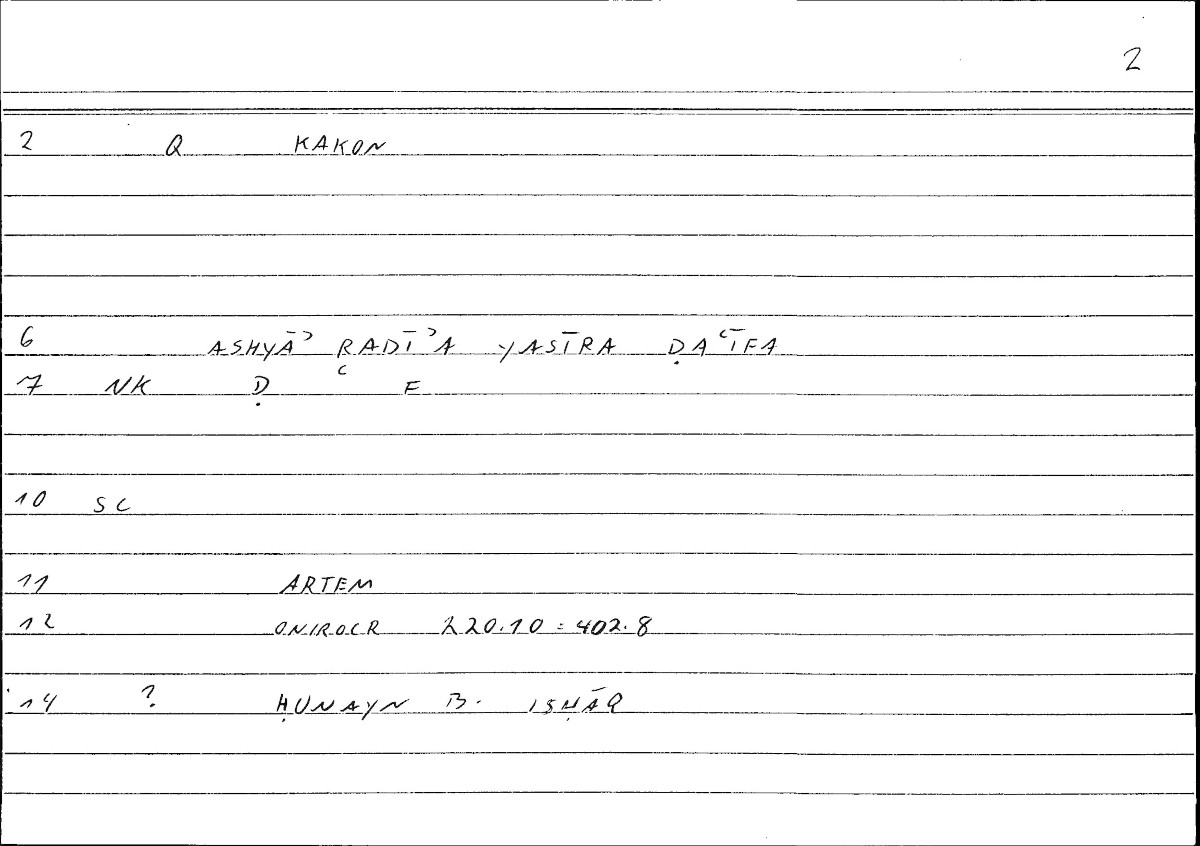 2
2 Q KAKON
6 ASHYĀʾ RADĪʾA YASĪRA ḌAʿĪFA
7 NK Ḍ ʿ F
10 SC
11 ARTEM
12 ONIROCR 220.10 = 402.8
14 ? ḤUNAYN B. ISḤĀQ